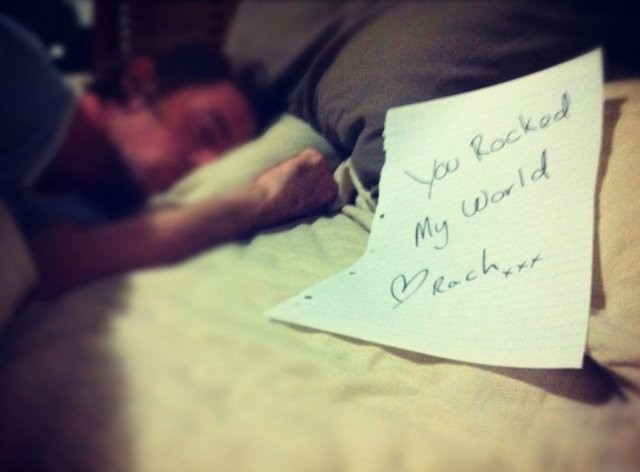 You Rocked
My World
♡ Rach xxx